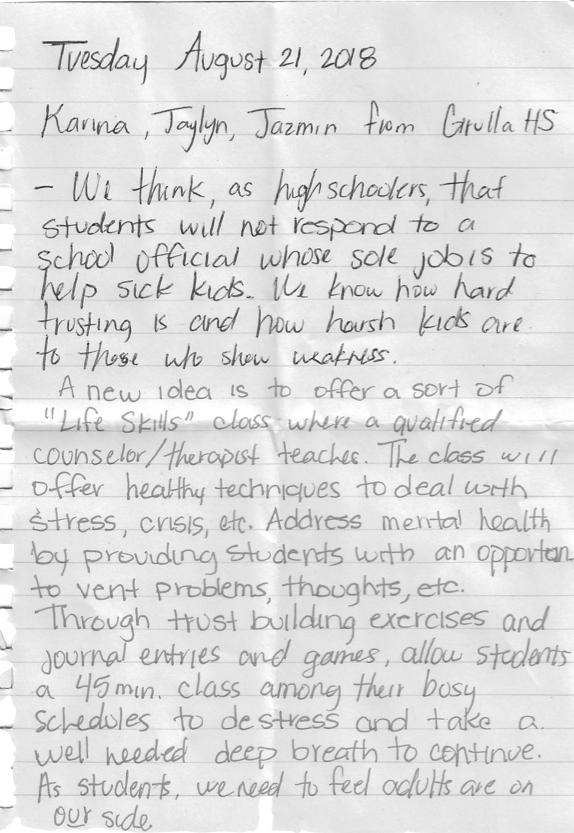 Tuesday August 21, 2018
Karina, Jaylyn, Jazmin from Grulla HS
- We think, as highschoolers, that
students will not respond to a
school official whose sole job is to
help sick kids. We know how hard
trusting is and how harsh kids are
to those who show weakness.
A new idea is to offer a sort of
"Life Skills" class where a qualified
counselor/therapist teaches. The class will
offer healthy techniques to deal with
stress, crisis, etc. Address mental health
by providing students with an opportun
to vent problems, thoughts, etc.
Through trust building exercises and
journal entries and games, allow students
a 45 min. class among their busy
schedules to de stress and take a
well needed deep breath to continue.
As students, we need to feel adults are on
our side